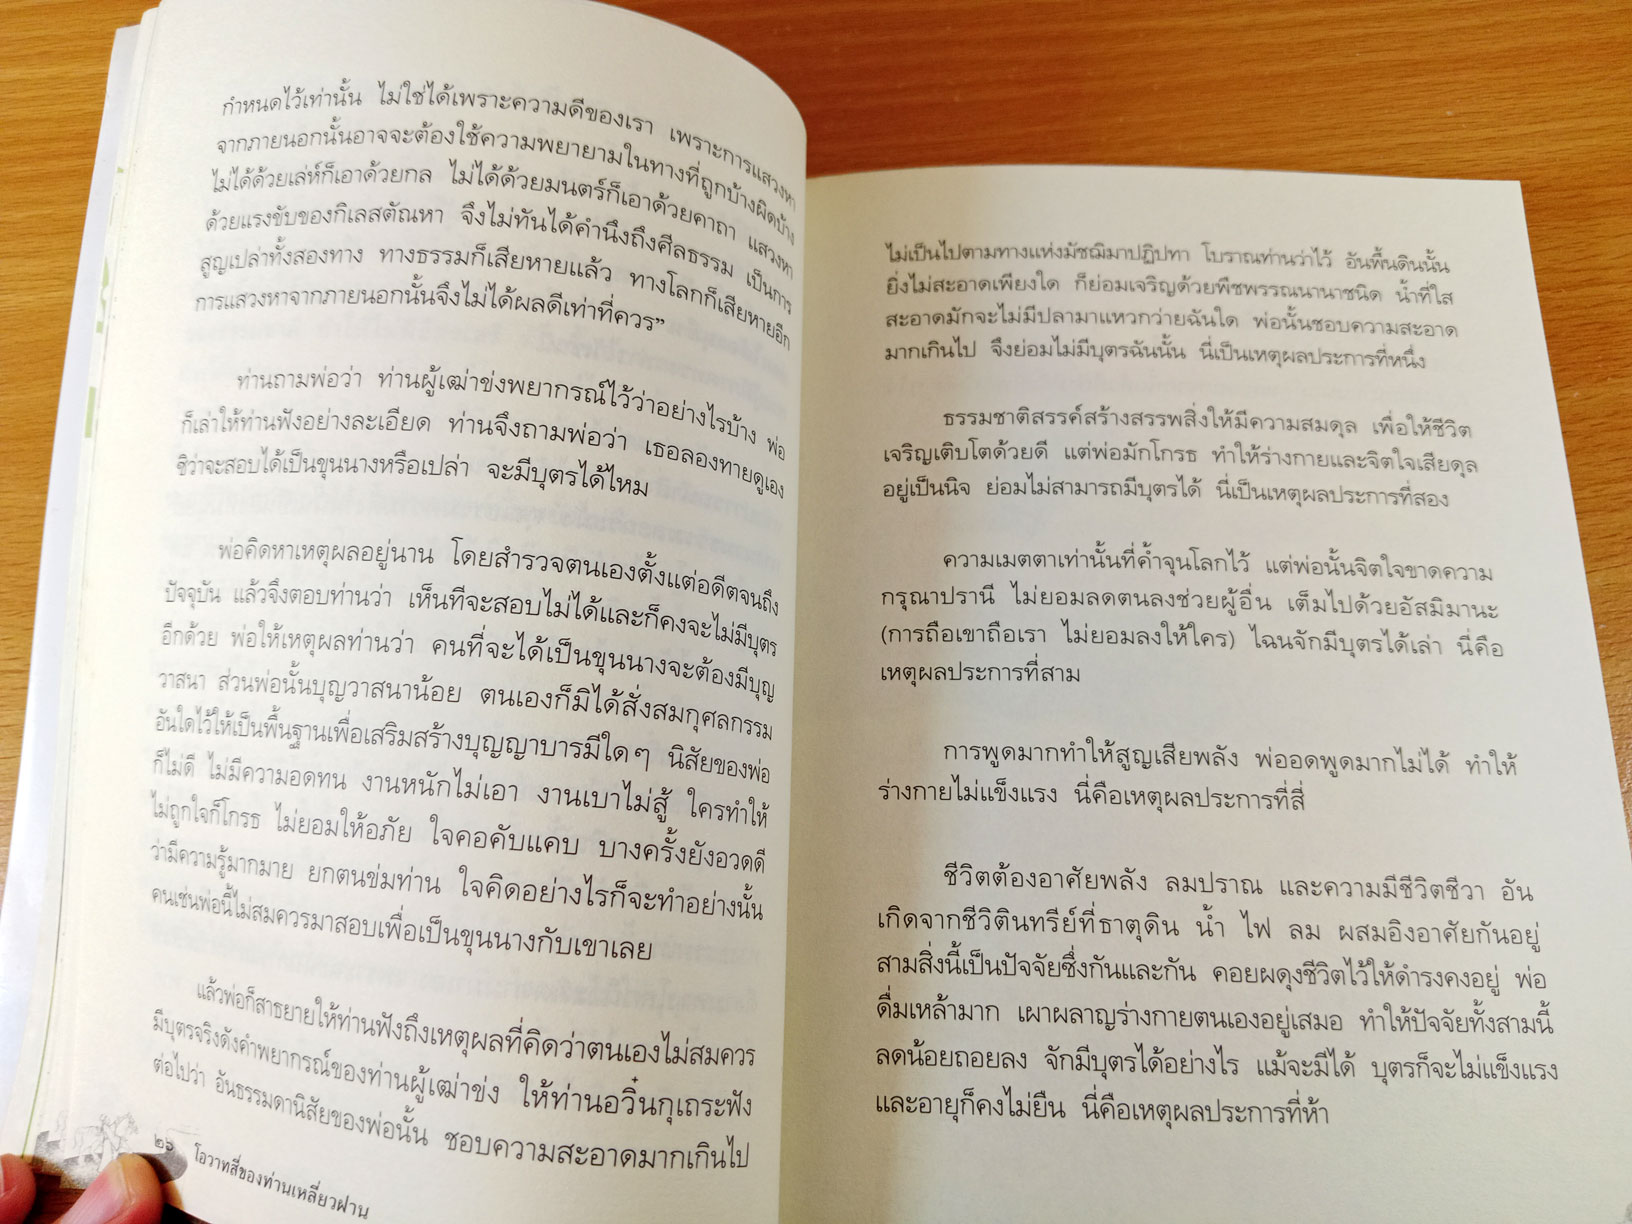 กำหนดไว้เท่านั้น ไม่ใช่ได้เพราะความดีของเรา เพราะการแสวงหา
จากภายนอกนั้นอาจจะต้องใช้ความพยายามในทางที่ถูกบ้างผิดบ้าง
ไม่ได้ด้วยเล่ห์ก็เอาด้วยกล ไม่ได้ด้วยมนตร์ก็เอาด้วยคาถา แสวงหา
ด้วยแรงขับของกิเลสตัณหา จึงไม่ทันได้คำนึงถึงศีลธรรม เป็นการ
สูญเปล่าทั้งสองทาง ทางธรรมก็เสียหายแล้ว ทางโลกก็เสียหายอีก
การแสวงหาจากภายนอกนั้นจึงไม่ได้ผลดีเท่าที่ควร”
ท่านถามพ่อว่า ท่านผู้เฒ่าข่งพยากรณ์ไว้ว่าอย่างไรบ้าง พ่อ
ก็เล่าให้ท่านฟังอย่างละเอียด ท่านจึงถามพ่อว่า เธอลองทายดูเอง
ซิว่าจะสอบได้เป็นขุนนางหรือเปล่า จะมีบุตรได้ไหม
พ่อคิดหาเหตุผลอยู่นาน โดยสำรวจตนเองตั้งแต่อดีตจนถึง
ปัจจุบัน แล้วจึงตอบท่านว่า เห็นทีจะสอบไม่ได้และก็คงจะไม่มีบุตร
อีกด้วย พ่อให้เหตุผลท่านว่า คนที่จะได้เป็นขุนนางจะต้องมีบุญ
วาสนา ส่วนพ่อนั้นบุญวาสนาน้อย ตนเองก็มิได้สั่งสมกุศลกรรม
อันใดไว้ให้เป็นพื้นฐานเพื่อเสริมสร้างบุญญาบารมีใดๆ นิสัยของพ่อ
ก็ไม่ดี ไม่มีความอดทน งานหนักไม่เอา งานเบาไม่สู้ ใครทำให้
ไม่ถูกใจก็โกรธ ไม่ยอมให้อภัย ใจคอคับแคบ บางครั้งยังอวดดี
ว่ามีความรู้มากมาย ยกตนข่มท่าน ใจคิดอย่างไรก็จะทำอย่างนั้น
คนเช่นพ่อนี้ไม่สมควรมาสอบเพื่อเป็นขุนนางกับเขาเลย
แล้วพ่อก็สาธยายให้ท่านฟังถึงเหตุผลที่คิดว่าตนเองไม่สมควร
มีบุตรจริงดังคำพยากรณ์ของท่านผู้เฒ่าข่ง ให้ท่านอวิ๋นกุเถระฟัง
ต่อไปว่า อันธรรมดานิสัยของพ่อนั้น ชอบความสะอาดมากเกินไป
๒๖ โอวาทสี่ของท่านเหลี่ยวฝาน
ไม่เป็นไปตามทางแห่งมัชฌิมาปฏิปทา โบราณท่านว่าไว้ อันพื้นดินนั้น
ยิ่งไม่สะอาดเพียงใด ก็ย่อมเจริญด้วยพืชพรรณนานาชนิด น้ำที่ใส
สะอาดมักจะไม่มีปลามาแหวกว่ายฉันใด พ่อนั้นชอบความสะอาด
มากเกินไป จึงย่อมไม่มีบุตรฉันนั้น นี่เป็นเหตุผลประการที่หนึ่ง
ธรรมชาติสรรค์สร้างสรรพสิ่งให้มีความสมดุล เพื่อให้ชีวิต
เจริญเติบโตด้วยดี แต่พ่อมักโกรธ ทำให้ร่างกายและจิตใจเสียดุล
อยู่เป็นนิจ ย่อมไม่สามารถมีบุตรได้ นี่เป็นเหตุผลประการที่สอง
ความเมตตาเท่านั้นที่ค้ำจุนโลกไว้ แต่พ่อนั้นจิตใจขาดความ
กรุณาปรานี ไม่ยอมลดตนลงช่วยผู้อื่น เต็มไปด้วยอัสมิมานะ
(การถือเขาถือเรา ไม่ยอมลงให้ใคร) ไฉนจักมีบุตรได้เล่า นี่คือ
เหตุผลประการที่สาม
การพูดมากทำให้สูญเสียพลัง พ่ออดพูดมากไม่ได้ ทำให้
ร่างกายไม่แข็งแรง นี่คือเหตุผลประการที่สี่
ชีวิตต้องอาศัยพลัง ลมปราณ และความมีชีวิตชีวา อัน
เกิดจากชีวิตินทรีย์ที่ธาตุดิน น้ำ ไฟ ลม ผสมอิงอาศัยกันอยู่
สามสิ่งนี้เป็นปัจจัยซึ่งกันและกัน คอยผดุงชีวิตไว้ให้ดำรงคงอยู่ พ่อ
ดื่มเหล้ามาก เผาผลาญร่างกายตนเองอยู่เสมอ ทำให้ปัจจัยทั้งสามนี้
ลดน้อยถอยลง จักมีบุตรได้อย่างไร แม้จะมีได้ บุตรก็จะไม่แข็งแรง
และอายุก็คงไม่ยืน นี่คือเหตุผลประการที่ห้า